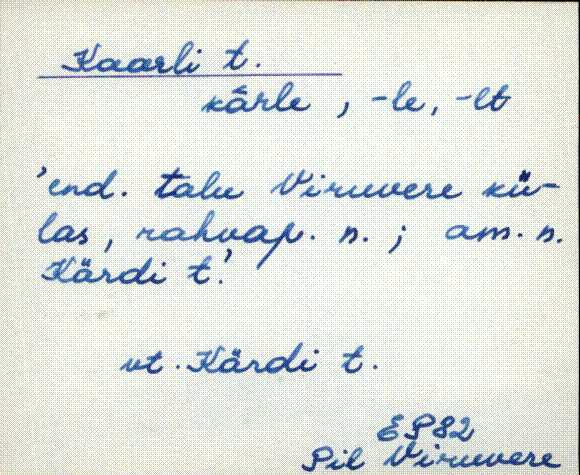 Kaarli t.
kàrle, -le, -lt
'end. talu Viruvere kü-
las, rahvap. n.; am. n.
Kärdi t.'
vt. Kärdi t.
EP82
Pil Viruvere